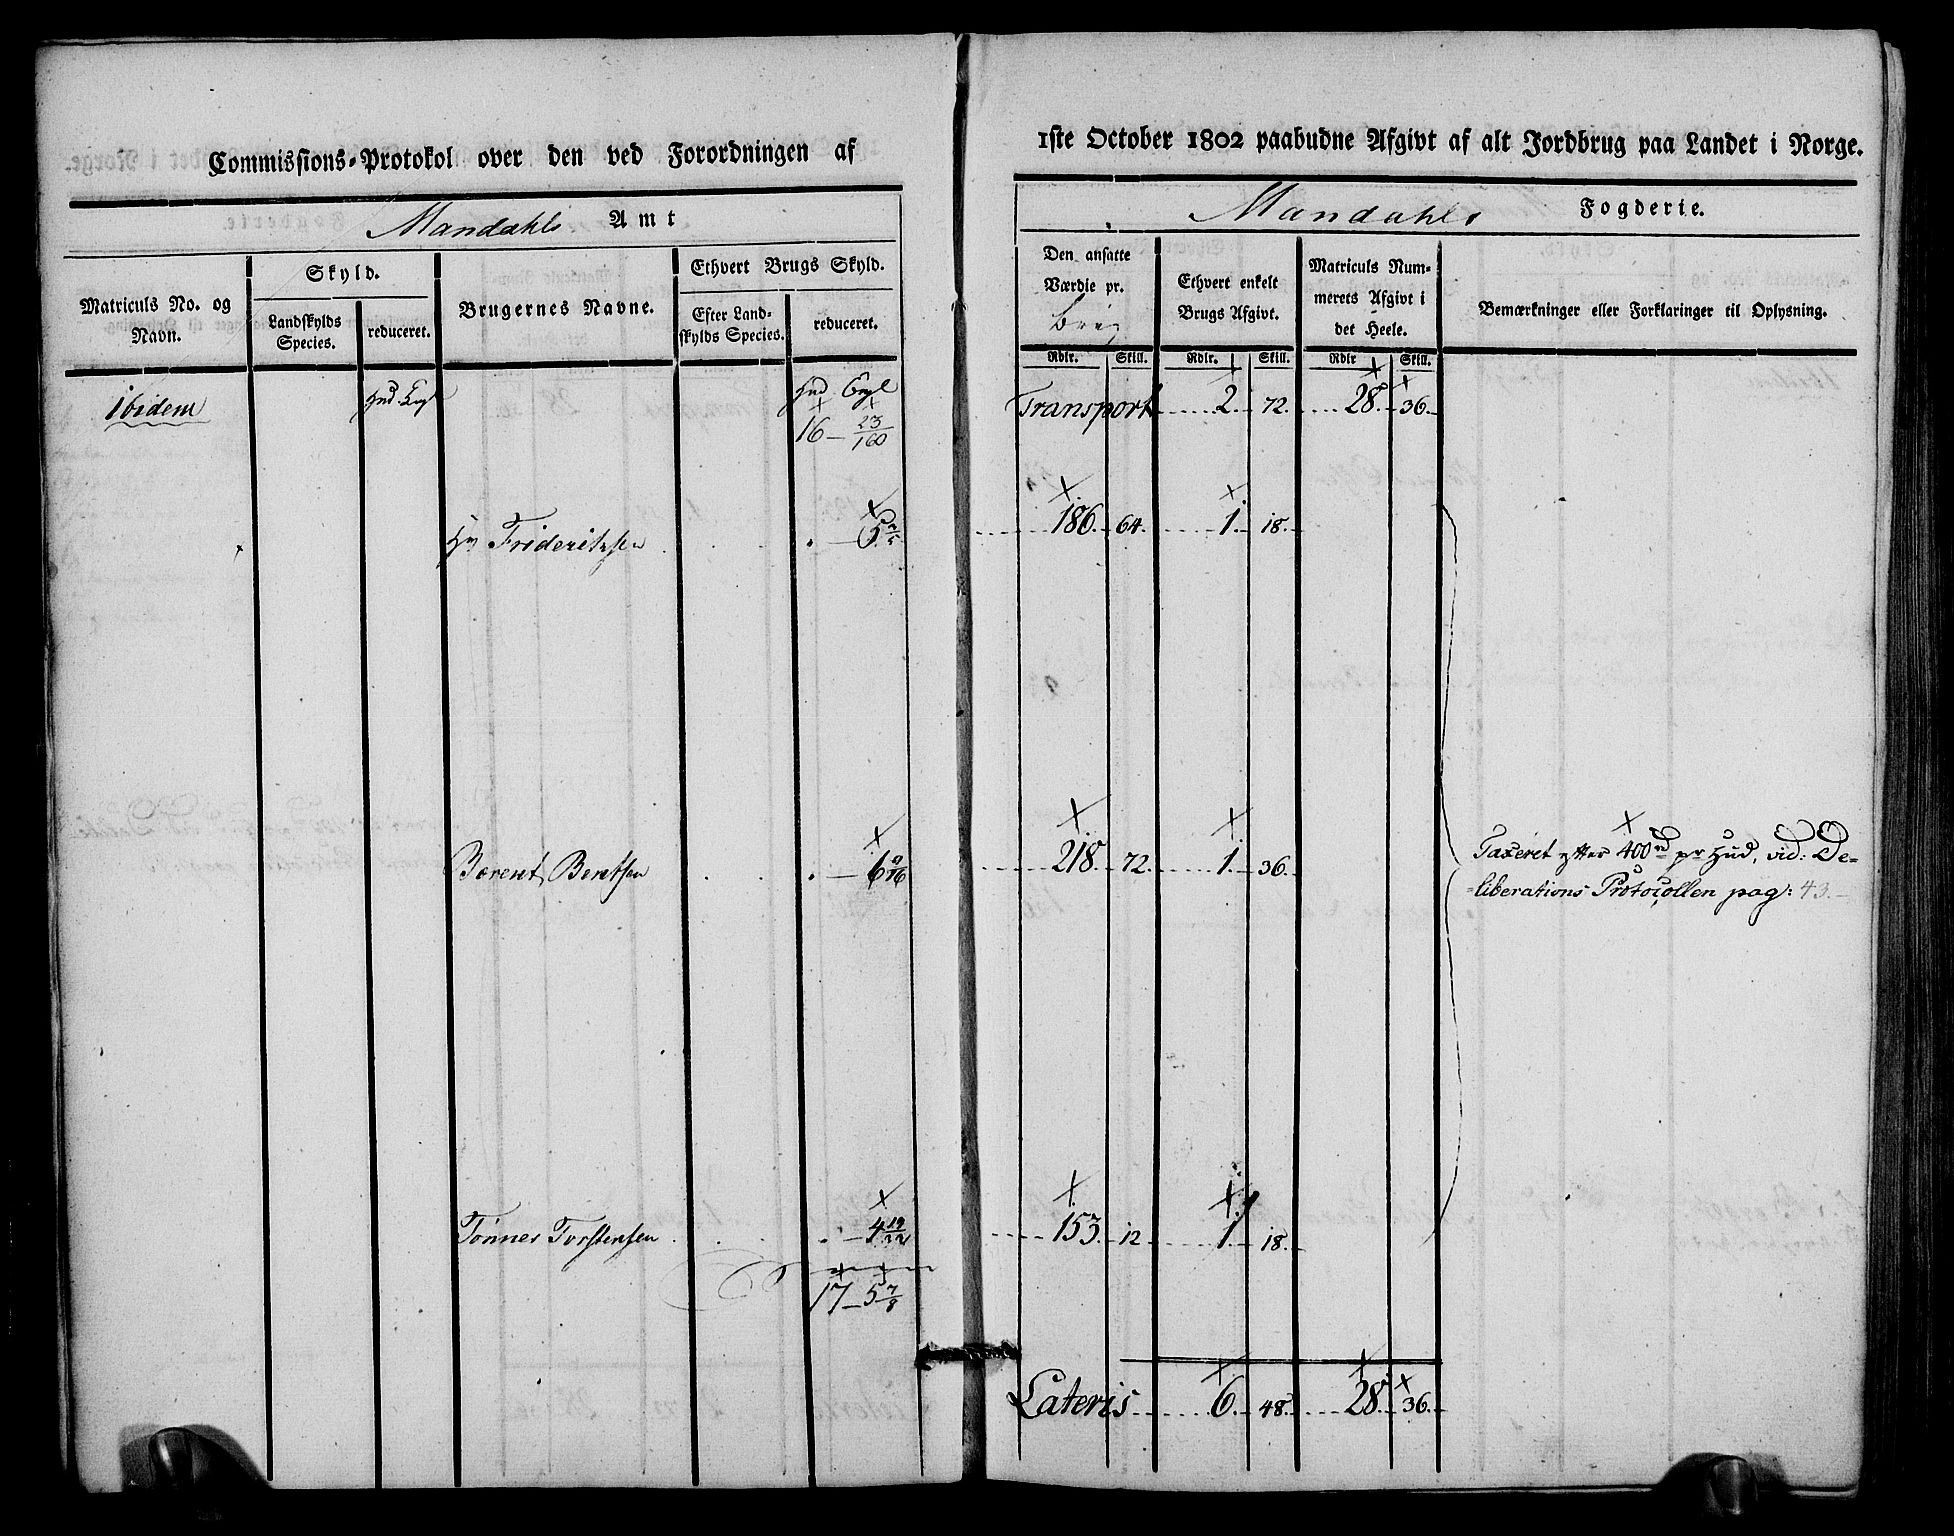 Commissions-Protokol over den ved Forordningen af
1ste October 1802 paabudne Afgivt af alt Jordbrug paa Landet i Norge.
Mandahls Amt
Mandahls Fogderie.
Matriculs No. og Navn.
Skyld.
Landskylds Species.
reduceret.
Brugernes Navne.
Ethvert Brugs Skyld.
Efter Landskylds Species.
reduceret.
Den ansatte Værdie pr.
Rdlr. Skill.
Ethvert enkelt Brugs Afgivt.
Rdlr. Skill.
Matriculs Nummerets Afgivt i det Heele.
Rdlr Skill.
Bemærkninger eller Forklaringer til Oplysning.
ibidem Hud. Engl Hud Engl Transport 2. 72. 28. 36.
16 — 23/160
Fideritzsen 186. 64. 1. 18.
Berent Bentsen 218. 72. 1. 36.
Taxeret efter 400 rd pr Hud, vid: De=
=liberations Protocollen pag: 43.
Tønnes Torstensen 4 19/22 153. 12 1. 18.
17 — 5 7/8
Lateris 6. 48. 28. 36.